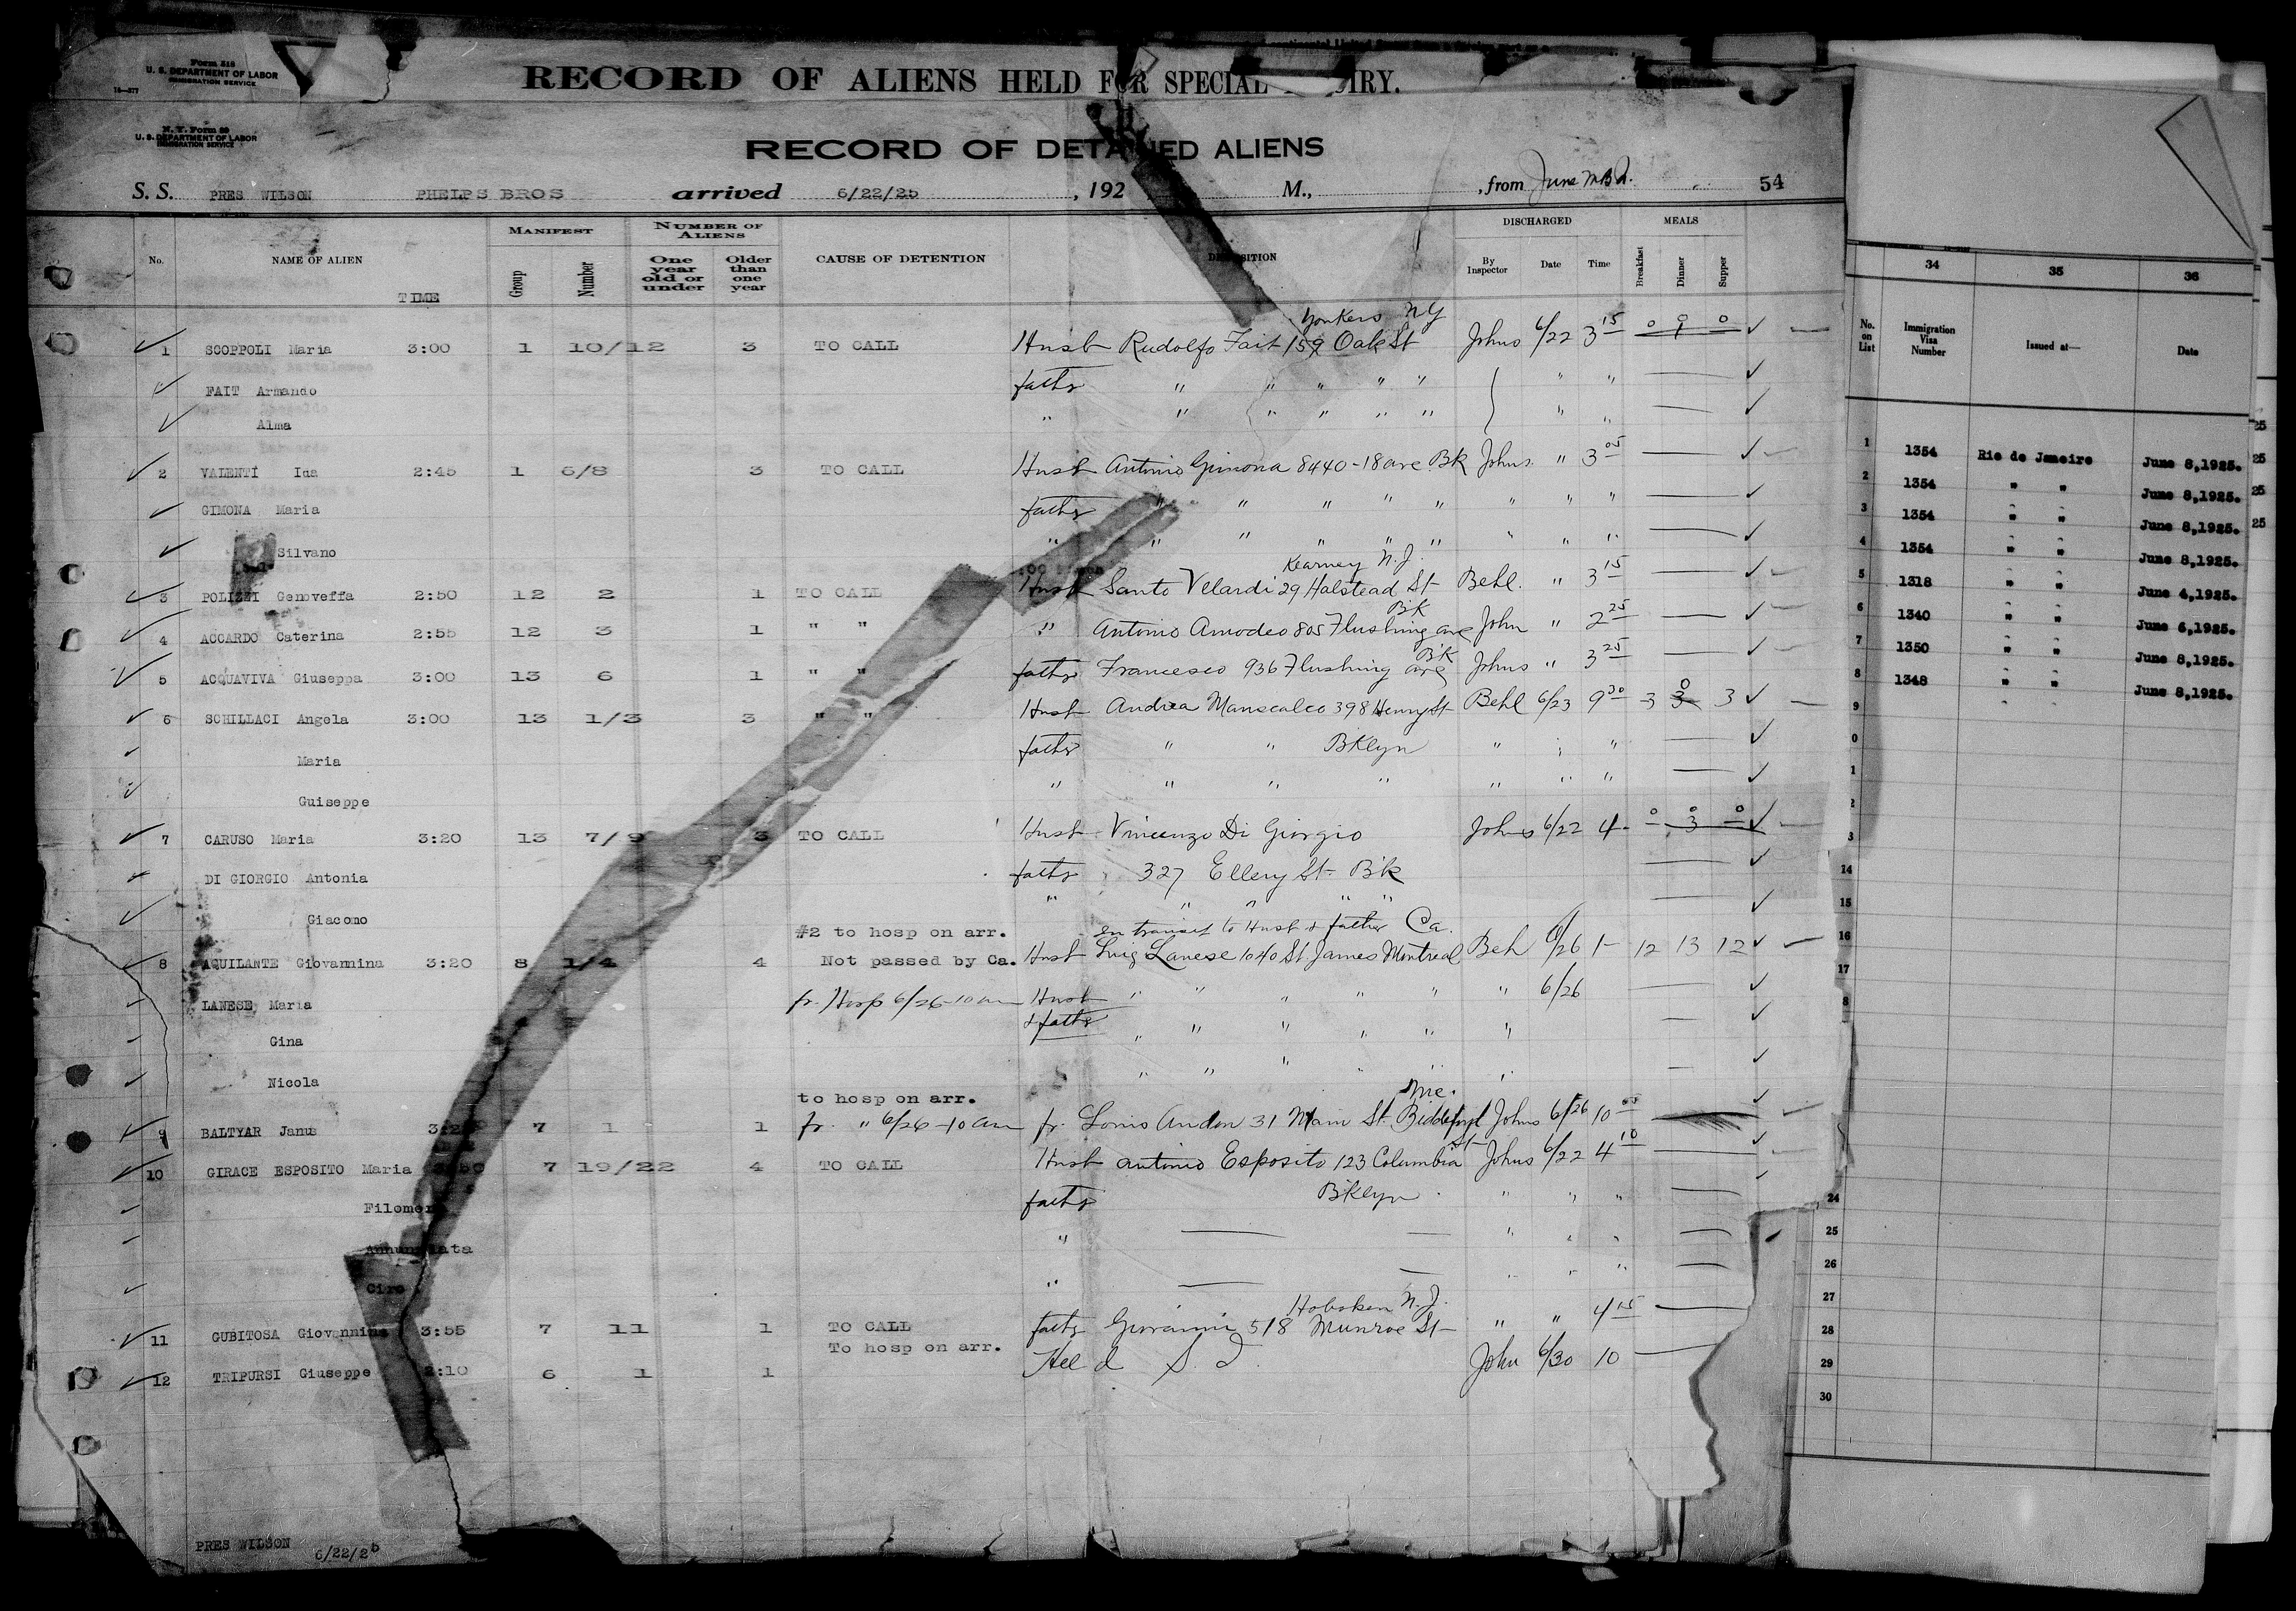 Form 518
U. S. DEPARTMENT OF LABOR
IMMIGRATION SERVICE
RECORD OF ALIENS HELD FOR SPECIAL
N. Y. Form 99
U. S. DEPARTMENT OF LABOR
IMMIGRATION SERVICE
RECORD OF DETAINED ALIENS
S. S. PRES WILSON PHELPS BROS arrived 6/22/25 , 192 M., , from 54
No. NAME OF ALIEN TIME MANIFEST Group Number NUMBER OF ALIENS One year old or under Older than one year CAUSE OF DETENTION DISPOSITION DISCHARGED By Inspector Date Time MEALS Breakfast Dinner Supper
Yonkers NY
1 SCOPPOLI Maria 3:00 1 10/12 3 TO CALL Husb Rudolfo Fait 159 Oak St Johns 6/22 3 15 0 0 0
FAIT Armando fathr " " " " " " "
Alma " " " " " " " "
2 VALENTI Ida 2:45 1 6/8 3 TO CALL Husb Antonio Gimona 8440-18 ave Bk Johns " 3 05
GIMONA Maria fathr " " " " " " " "
Silvano " " " " " " " " "
Kearney N.J.
3 POLIZZI Genoveffa 2:50 12 2 1 TO CALL Husb Santo Velardi 29 Halstead St Behl. " 3 15
Bk
4 ACCARDO Caterina 2:55 12 3 1 " " " Antonio Amodeo 805 Flushing ave John " 2 25
Bk
5 ACQUAVIVA Giuseppa 3:00 13 6 1 " " fathr Francesco 936 Flushing ave Johns " 3 25
6 SCHILLACI Angela 3:00 13 1/3 3 " " Husb Andrea Manscalco 398 Henry St Behl 6/23 9 30 3 3 0 3
Maria fathr " " Bklyn " " "
Guiseppe " " " " " " "
7 CARUSO Maria 3:20 13 7/9 3 TO CALL Husb Vincenzo Di Giorgio Johns 6/22 4- 0 0 3 0
DI GIORGIO Antonia fathr 327 Ellery St Bk
Giacomo " " " " "
#2 to hosp on arr. en transit to Husb & father Ca.
8 AQUILANTE Giovannina 3:20 8 1/4 4 Not passed by Ca. Husb Luig Lanese 1040 St. James Montreal Beh 6/26 1- 12 13 12
LANESE Maria fr. Hosp 6/26-10 am Husb " " " " " " 6/26
Gina & fathr " " " " " "
Nicola " " " " " "
to hosp on arr. Me.
9 BALTYAR Janus 7 1 1 fr. " 6/26-10 am fr. 31 Main St Johns 6/26 10
St
10 GIRACE ESPOSITO Maria 7 19/22 4 TO CALL Husb Antonio Esposito 123 Columbia Johns 6/22 4 10
Filomena fathr Bklyn " " "
Annunziata " " " "
Ciro " " " "
Hoboken N.J.
11 GUBITOSA Giovannina 3:55 7 11 1 TO CALL fathr Giovanni 518 Munroe St " " 4 15
To hosp on arr.
12 TRIPURSI Giuseppe 2:10 6 1 1 Held S. I. John 6/30 10
PRES WILSON 6/22/25
34 35 36
No. on List Immigration Visa Number Issued at— Date
1 1354 Rio de Janeiro June 8,1925.
2 1354 " " June 8,1925.
3 1354 " " June 8,1925.
4 1354 " " June 8,1925.
5 1318 " " June 4,1925.
6 1340 " " June 6,1925.
7 1350 " " June 8,1925.
8 1348 " " June 8,1925.
9
0
1
2
3
14
15
16
17
8
24
25
26
27
28
29
30
25
25
25
25